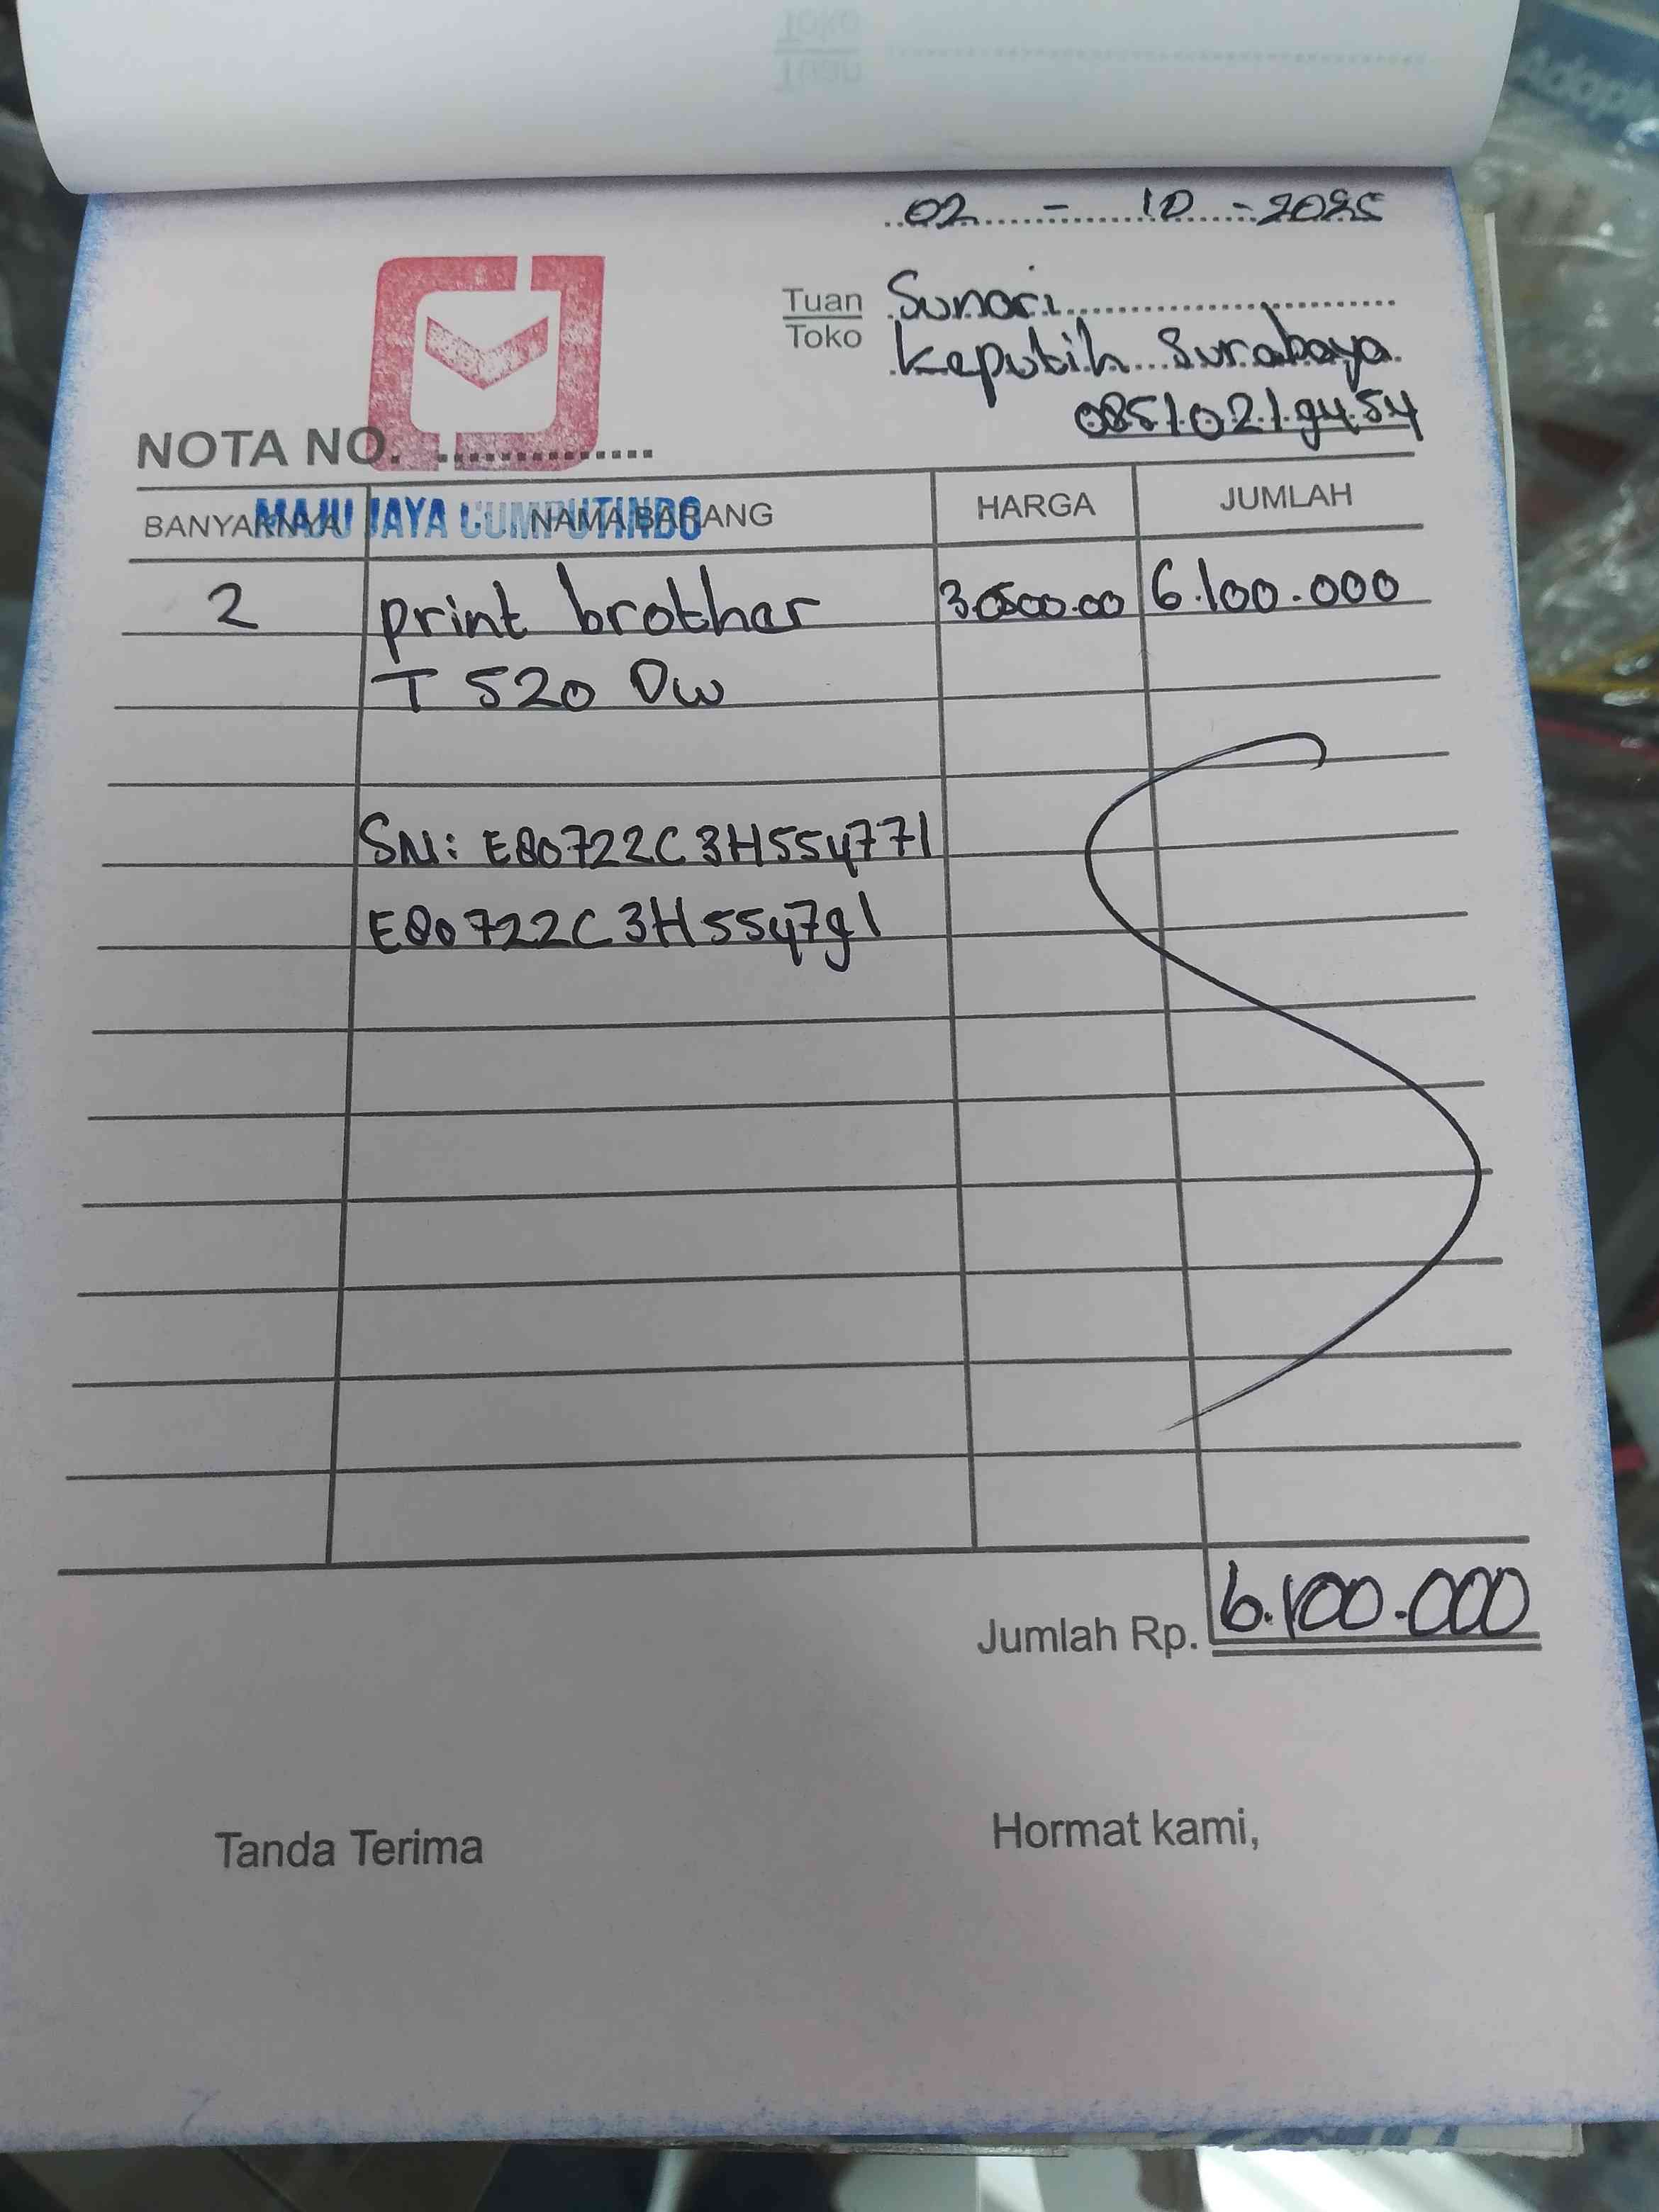 02 - 10 - 2025
Tuan Sunari
Toko Keputih Surabaya
085102194.54
NOTA NO.
MAJU JAYA COMPUTINDO
BANYAKNYA NAMA BARANG HARGA JUMLAH
2 print brothar 6.100.000
T 520 Dw
SN: E80722C3H554771
E80722C3H554791
Jumlah Rp. 6.100.000
Tanda Terima Hormat kami,